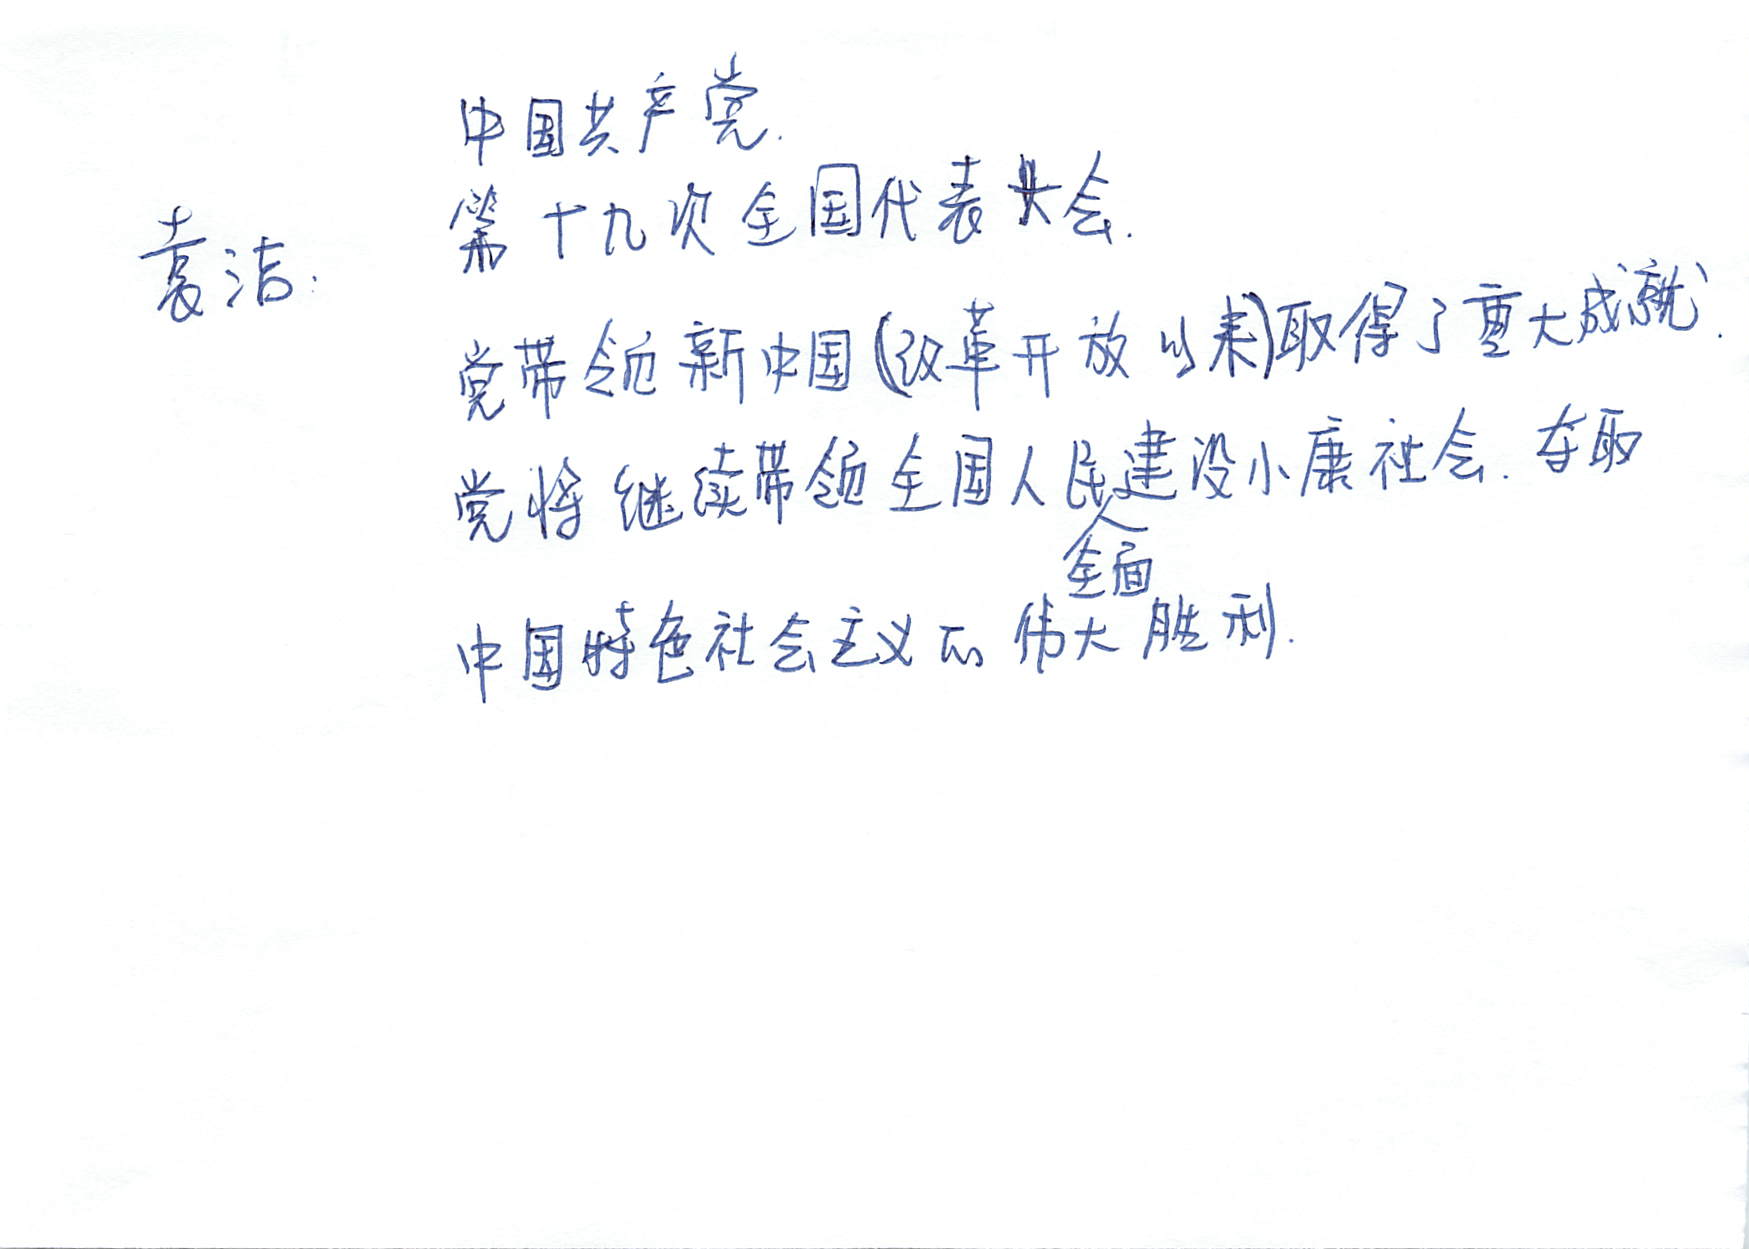 袁洁:
中国共产党.
第十九次全国代表大会.
党带领新中国(改革开放以来)取得了重大成就.
党将继续带领全国人民建设小康社会.夺取
全面
中国特色社会主义的伟大胜利.